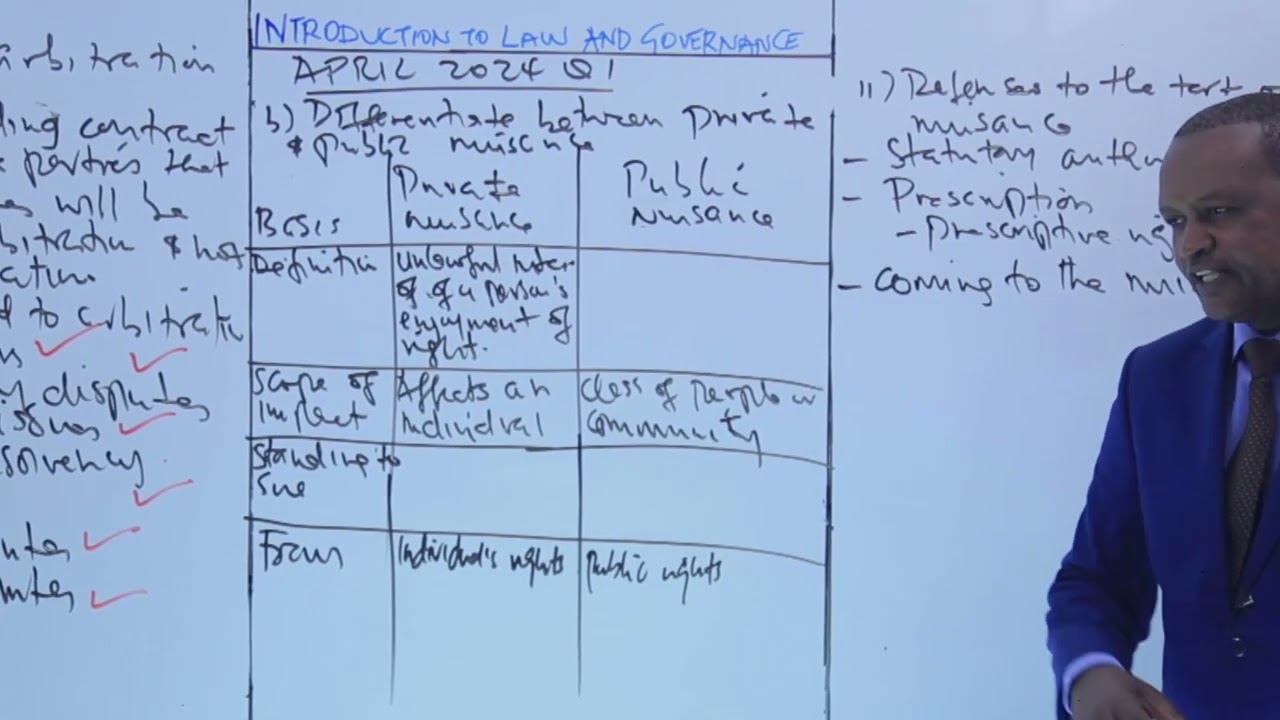 arbitration
ding contract
parties that
es will be
bitration & not
ation.
d to arbitratio
ns
of disputes
issues
solvency
utes
utes
INTRODUCTION TO LAW AND GOVERNANCE
APRIL 2024 Q1
b) Differentiate between private
& public nuisance
Basis
Private
nuisance
Public
Nuisance
Definition
unlawful inter.
of a person's
enjoyment of
right.
Scope of
Impact
Affects an
individual
Class of people or
community
Standing to
Sue
Focus
Individual's rights
Public rights
ii) Defenses to the tort
nuisance
- Statutory auth
- Prescription
- Prescriptive rig
- Coming to the nui